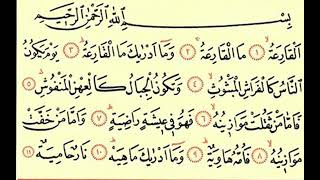 بِسْمِ اللَّهِ الرَّحْمَٰنِ الرَّحِيمِ
الْقَارِعَةُ ١ مَا الْقَارِعَةُ ٢ وَمَا أَدْرَاكَ مَا الْقَارِعَةُ ٣ يَوْمَ يَكُونُ
النَّاسُ كَالْفَرَاشِ الْمَبْثُوثِ ٤ وَتَكُونُ الْجِبَالُ كَالْعِهْنِ الْمَنْفُوشِ ٥
فَأَمَّا مَنْ ثَقُلَتْ مَوَازِينُهُ ٦ فَهُوَ فِي عِيشَةٍ رَاضِيَةٍ ٧ وَأَمَّا مَنْ خَفَّتْ
مَوَازِينُهُ ٨ فَأُمُّهُ هَاوِيَةٌ ٩ وَمَا أَدْرَاكَ مَا هِيَهْ ١٠ نَارٌ حَامِيَةٌ ١١